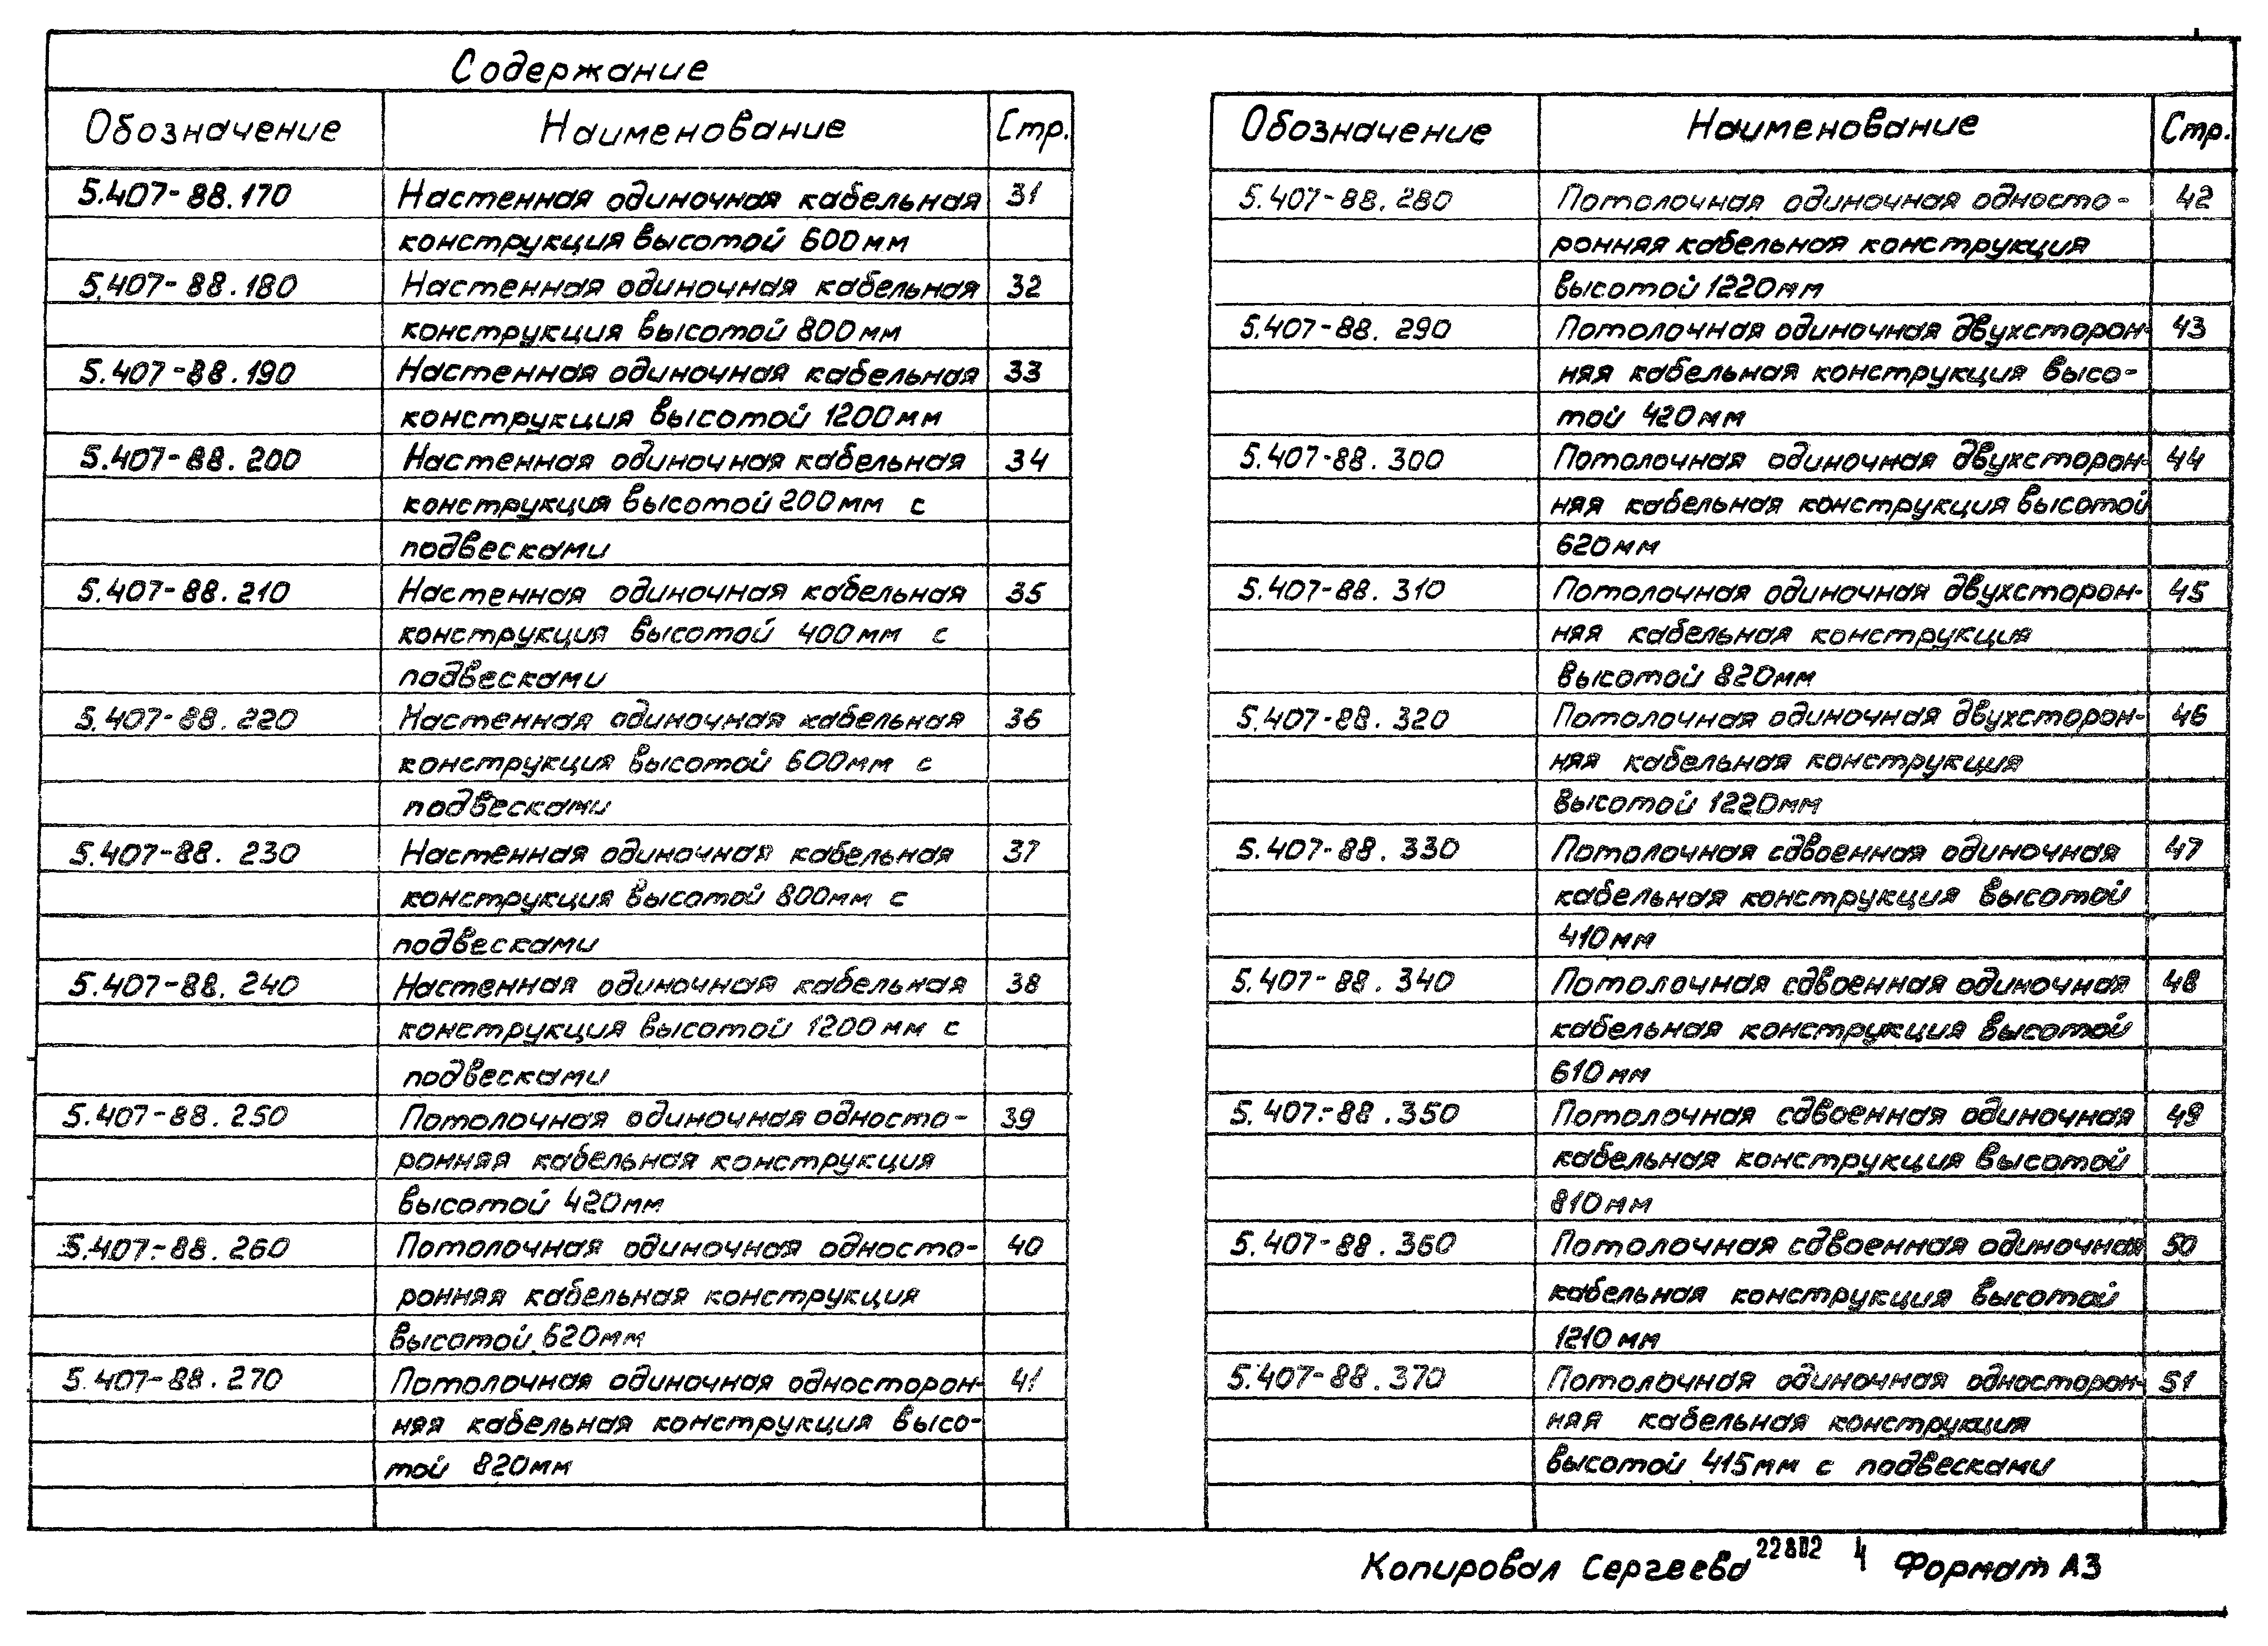 Содержание
Обозначение Наименование Стр.
5.407-88.170 Настенная одиночная кабельная 31
конструкция высотой 600мм
5.407-88.180 Настенная одиночная кабельная 32
конструкция высотой 800мм
5.407-88.190 Настенная одиночная кабельная 33
конструкция высотой 1200мм
5.407-88.200 Настенная одиночная кабельная 34
конструкция высотой 200мм с
подвесками
5.407-88.210 Настенная одиночная кабельная 35
конструкция высотой 400мм с
подвесками
5.407-88.220 Настенная одиночная кабельная 36
конструкция высотой 600мм с
подвесками
5.407-88.230 Настенная одиночная кабельная 37
конструкция высотой 800мм с
подвесками
5.407-88.240 Настенная одиночная кабельная 38
конструкция высотой 1200мм с
подвесками
5.407-88.250 Потолочная одиночная односто- 39
ронняя кабельная конструкция
высотой 420мм
5.407-88.260 Потолочная одиночная односто- 40
ронняя кабельная конструкция
высотой 620мм
5.407-88.270 Потолочная одиночная односторон- 41
няя кабельная конструкция высо-
той 820мм
Обозначение Наименование Стр.
5.407-88.280 Потолочная одиночная односто- 42
ронняя кабельная конструкция
высотой 1220мм
5.407-88.290 Потолочная одиночная двухсторон- 43
няя кабельная конструкция высо-
той 420мм
5.407-88.300 Потолочная одиночная двухсторон- 44
няя кабельная конструкция высотой
620мм
5.407-88.310 Потолочная одиночная двухсторон- 45
няя кабельная конструкция
высотой 820мм
5.407-88.320 Потолочная одиночная двухсторон- 46
няя кабельная конструкция
высотой 1220мм
5.407-88.330 Потолочная сдвоенная одиночная 47
кабельная конструкция высотой
410мм
5.407-88.340 Потолочная сдвоенная одиночная 48
кабельная конструкция высотой
610мм
5.407-88.350 Потолочная сдвоенная одиночная 49
кабельная конструкция высотой
810мм
5.407-88.360 Потолочная сдвоенная одиночная 50
кабельная конструкция высотой
1210мм
5.407-88.370 Потолочная одиночная односторон- 51
няя кабельная конструкция
высотой 415мм с подвесками
Копировал Сергеева 22802 4 Формат А3